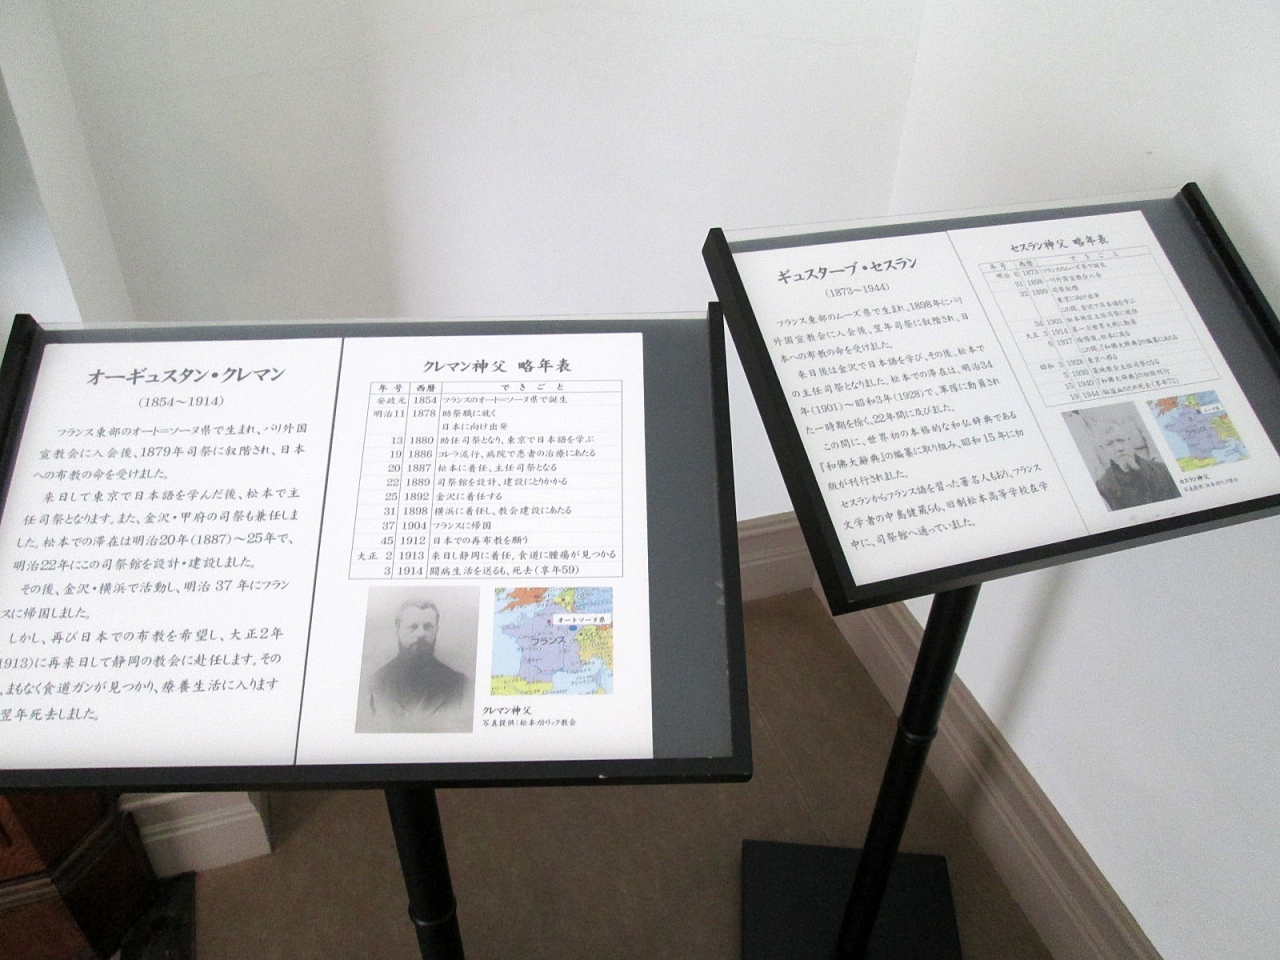 オーギュスタン・クレマン
(1854〜1914)
フランス東部のオート=ソーヌ県で生まれ、パリ外国
宣教会に入会後、1879年司祭に叙階され、日本
への布教の命を受けました。
来日して東京で日本語を学んだ後、松本で主
任司祭となります。また、金沢・甲府の司祭も兼任しま
した。松本での滞在は明治20年(1887)〜25年で、
明治22年にこの司祭館を設計・建設しました。
その後、金沢・横浜で活動し、明治 37 年にフラン
スに帰国しました。
しかし、再び日本での布教を希望し、大正2年
1913)に再来日して静岡の教会に赴任します。その
、まもなく食道ガンが見つかり、療養生活に入ります
翌年死去しました。
クレマン神父 略年表
年 号 西暦 で き ご と
安政元 1854 フランスのオート=ソーヌ県で誕生
明治11 1878 助祭職に就く
日本に向け出発
13 1880 助任司祭となり、東京で日本語を学ぶ
19 1886 コレラ流行、病院で患者の治療にあたる
20 1887 松本に着任、主任司祭となる
22 1889 司祭館を設計、建設にとりかかる
25 1892 金沢に着任する
31 1898 横浜に着任し、教会建設にあたる
37 1904 フランスに帰国
45 1912 日本での再布教を願う
大正 2 1913 来日し静岡に着任、食道に腫瘍が見つかる
3 1914 闘病生活を送るも、死去(享年59)
オートソーヌ県
フランス
クレマン神父
写真提供:松本カトリック教会
ギュスターブ・セスラン
(1873〜1944)
フランス東部のムーズ県で生まれ、1898年にパリ
外国宣教会に入会後、翌年司祭に叙階され、日
本への布教の命を受けました。
来日後は金沢で日本語を学び、その後、松本で
の主任司祭となりました。松本での滞在は、明治34
年(1901)〜昭和3年(1928)で、軍隊に動員され
た一時期を除く、22年間に及びました。
この間に、世界初の本格的な和仏辞典である
『和佛大辞典』の編纂に取り組み、昭和15年に初
版が刊行されました。
セスランからフランス語を習った著名人もおり、フランス
文学者の中島健蔵らも、旧制松本高等学校在学
中に、司祭館へ通っていました。
セスラン神父 略年表
年 号 西暦 で き ご と
明治 6 1873 フランスのムーズ県で誕生
31 1898 パリ外国宣教会入会
32 1899 司祭叙階
東京に向け出発
この間、金沢で日本語を学ぶ
34 1901 松本地区主任司祭に就任
大正 3 1914 第一次世界大戦に動員
6 1917 除隊後、松本に戻る
この間、『和佛大辞典』の編纂にあたる
昭和 3 1928 東京へ移る
5 1930
15 1940 『和佛大辞典』の初版刊行
19 1944
ムーズ県
セスラン神父
写真提供:松本カトリック教会